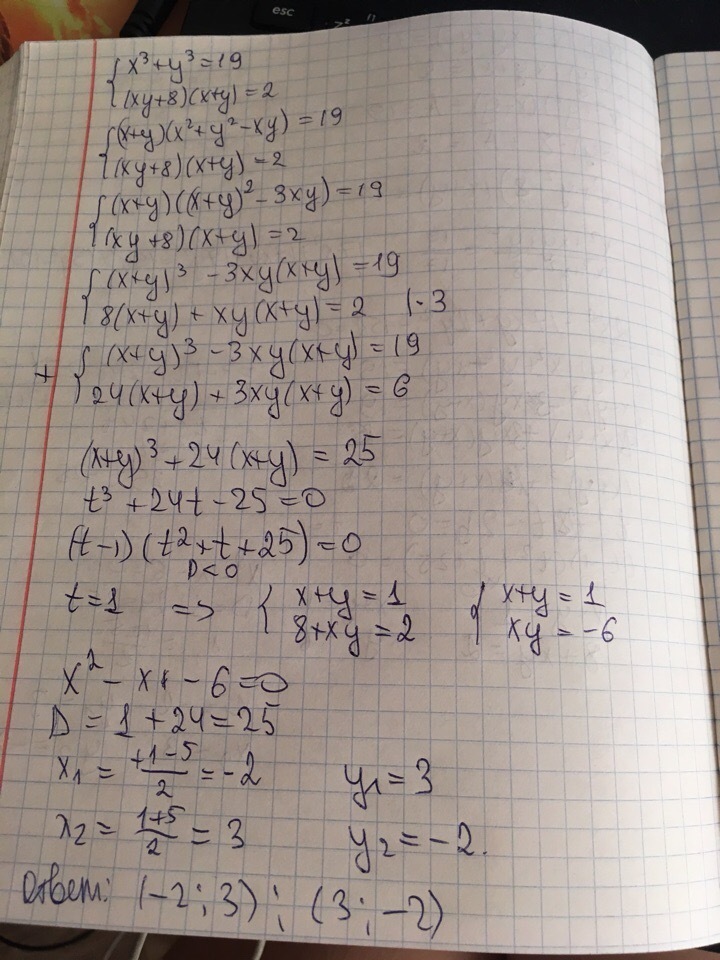 esc
{ x³+y³=19
{ (xy+8)(x+y)=2
{ (x+y)(x²+y²-xy)=19
{ (xy+8)(x+y)=2
{ (x+y)((x+y)²-3xy)=19
{ (xy+8)(x+y)=2
{ (x+y)³-3xy(x+y)=19
{ 8(x+y)+xy(x+y)=2 |·3
+ { (x+y)³-3xy(x+y)=19
{ 24(x+y)+3xy(x+y)=6
(x+y)³+24(x+y)=25
t³+24t-25=0
(t-1)(t²+t+25)=0
D<0
t=1 => { x+y=1 { x+y=1
8+xy=2 xy=-6
x²-x-6=0
D=1+24=25
x₁=(+1-5)/2=-2 y₁=3
x₂=(1+5)/2=3 y₂=-2.
Ответ: (-2;3); (3;-2)